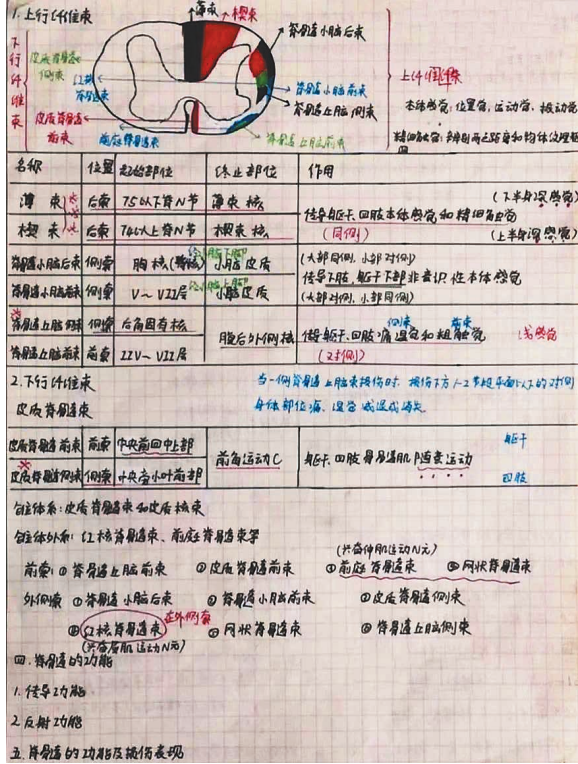 1. 上行纤维束
薄束 楔束
脊髓小脑后束
下行纤维束
皮质脊髓
侧束
红核
脊髓束
皮质脊髓
前束
前庭脊髓束
脊髓小脑前束
脊髓丘脑侧束
脊髓丘脑前束
上行纤维束
本体感觉:位置觉,运动觉,振动觉
精细触觉:辨别两点距离和物体纹理
名称 位置 起始部位 终止部位 作用
薄束 后索 T5以下脊N节 薄束核 (下半身深感觉)
传导躯干、四肢本体感觉和精细触觉
楔束 后索 T4以上脊N节 楔束核 (同侧) (上半身深感觉)
脊髓小脑后束 侧索 胸核 经小脑下脚 小脑皮质 (大部同侧,小部对侧)
传导下肢,躯干下部非意识性本体感觉
脊髓小脑前束 侧索 V~VII层 经小脑上脚 小脑皮质 (大部对侧,小部同侧)
脊髓丘脑侧束 侧索 后角固有核 侧束 前束
脑后外侧核 传导躯干、四肢痛温觉和粗触觉 浅感觉
脊髓丘脑前束 前索 IIV~VII层 (对侧)
2. 下行纤维束 当一侧脊髓丘脑束损伤时,损伤下方1-2节段平面以下的对侧
皮质脊髓束 身体部位痛、温觉减退或消失
皮质脊髓前束 前索 中央前回中上部 躯干
前角运动C 躯干、四肢骨骼肌随意运动
皮质脊髓侧束 侧索 中央旁小叶前部 四肢
锥体系:皮质脊髓束和皮质核束
锥体外系:红核脊髓束、前庭脊髓束等
(兴奋伸肌运动N元)
前索:① 脊髓丘脑前束 ② 皮质脊髓前束 ③ 前庭脊髓束 ④ 网状脊髓束
外侧索 ① 脊髓小脑后束 ② 脊髓小脑前束 ③ 皮质脊髓侧束
红核脊髓束 在外侧索 网状脊髓束 脊髓丘脑侧束
(兴奋屈肌运动N元)
四.脊髓的功能
1. 传导功能
2. 反射功能
五.脊髓的功能及损伤表现